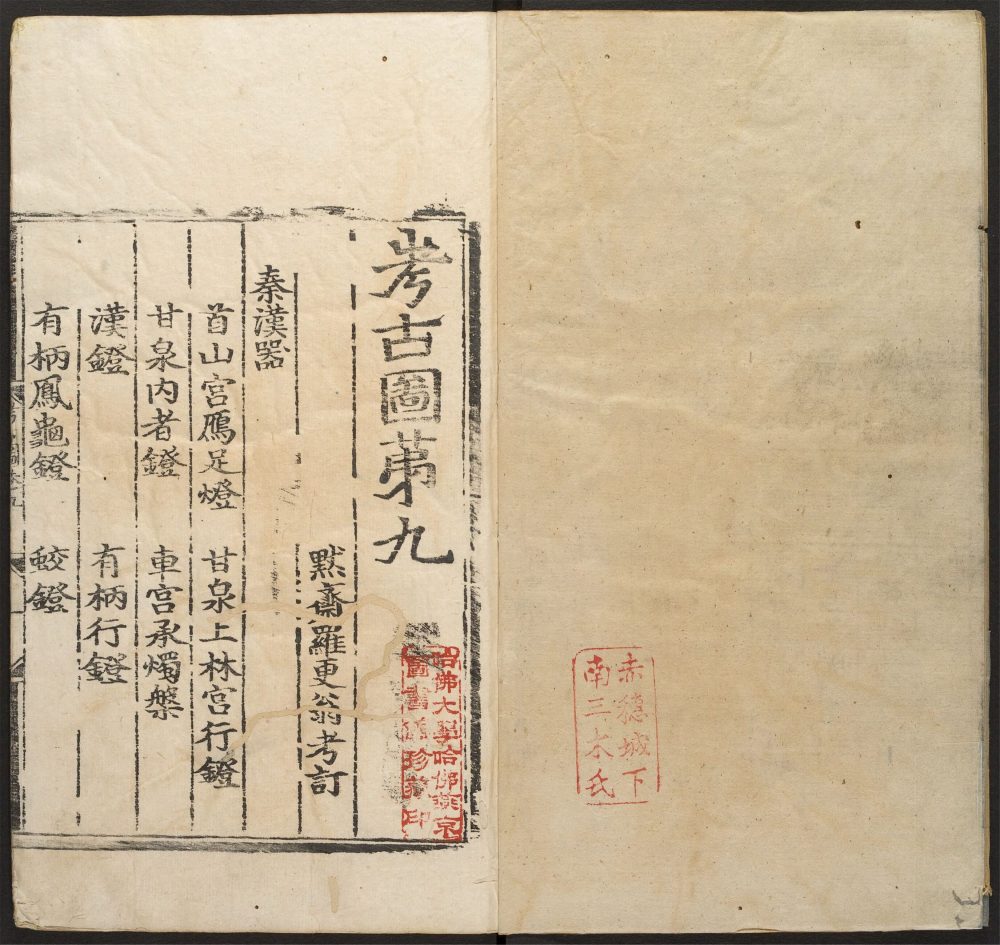 赤穗城下
南三木氏
考古圖苐九
默齋羅更翁考訂
秦漢器
首山宮鴈足燈　甘泉上林宮行鐙
甘泉內者鐙　車宮承燭槃
漢鐙　有柄行鐙
有柄鳳龜鐙　蛟鐙
哈佛大學哈佛燕京
圖書館珍藏印